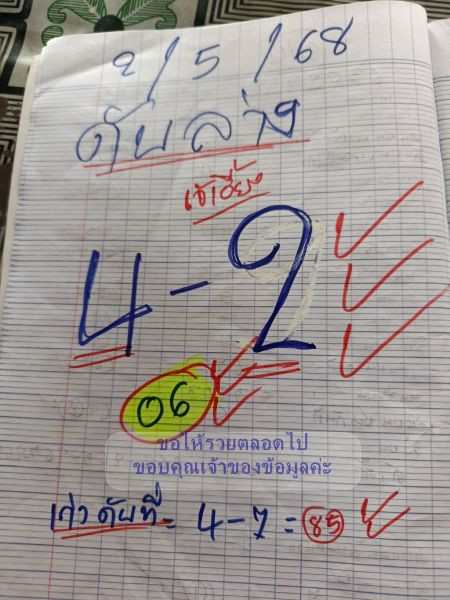 2/5/68
ดับล่าง
เจ๊เฮี้ยง
4-2
06
ขอให้รวยตลอดไป
ขอบคุณเจ้าของข้อมูลค่ะ
เก่าดับที่= 4-7=85